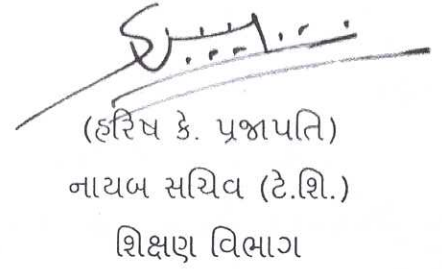 (હરિષ કે. પ્રજાપતિ)
નાયબ સચિવ (ટે.શિ.)
શિક્ષણ વિભાગ